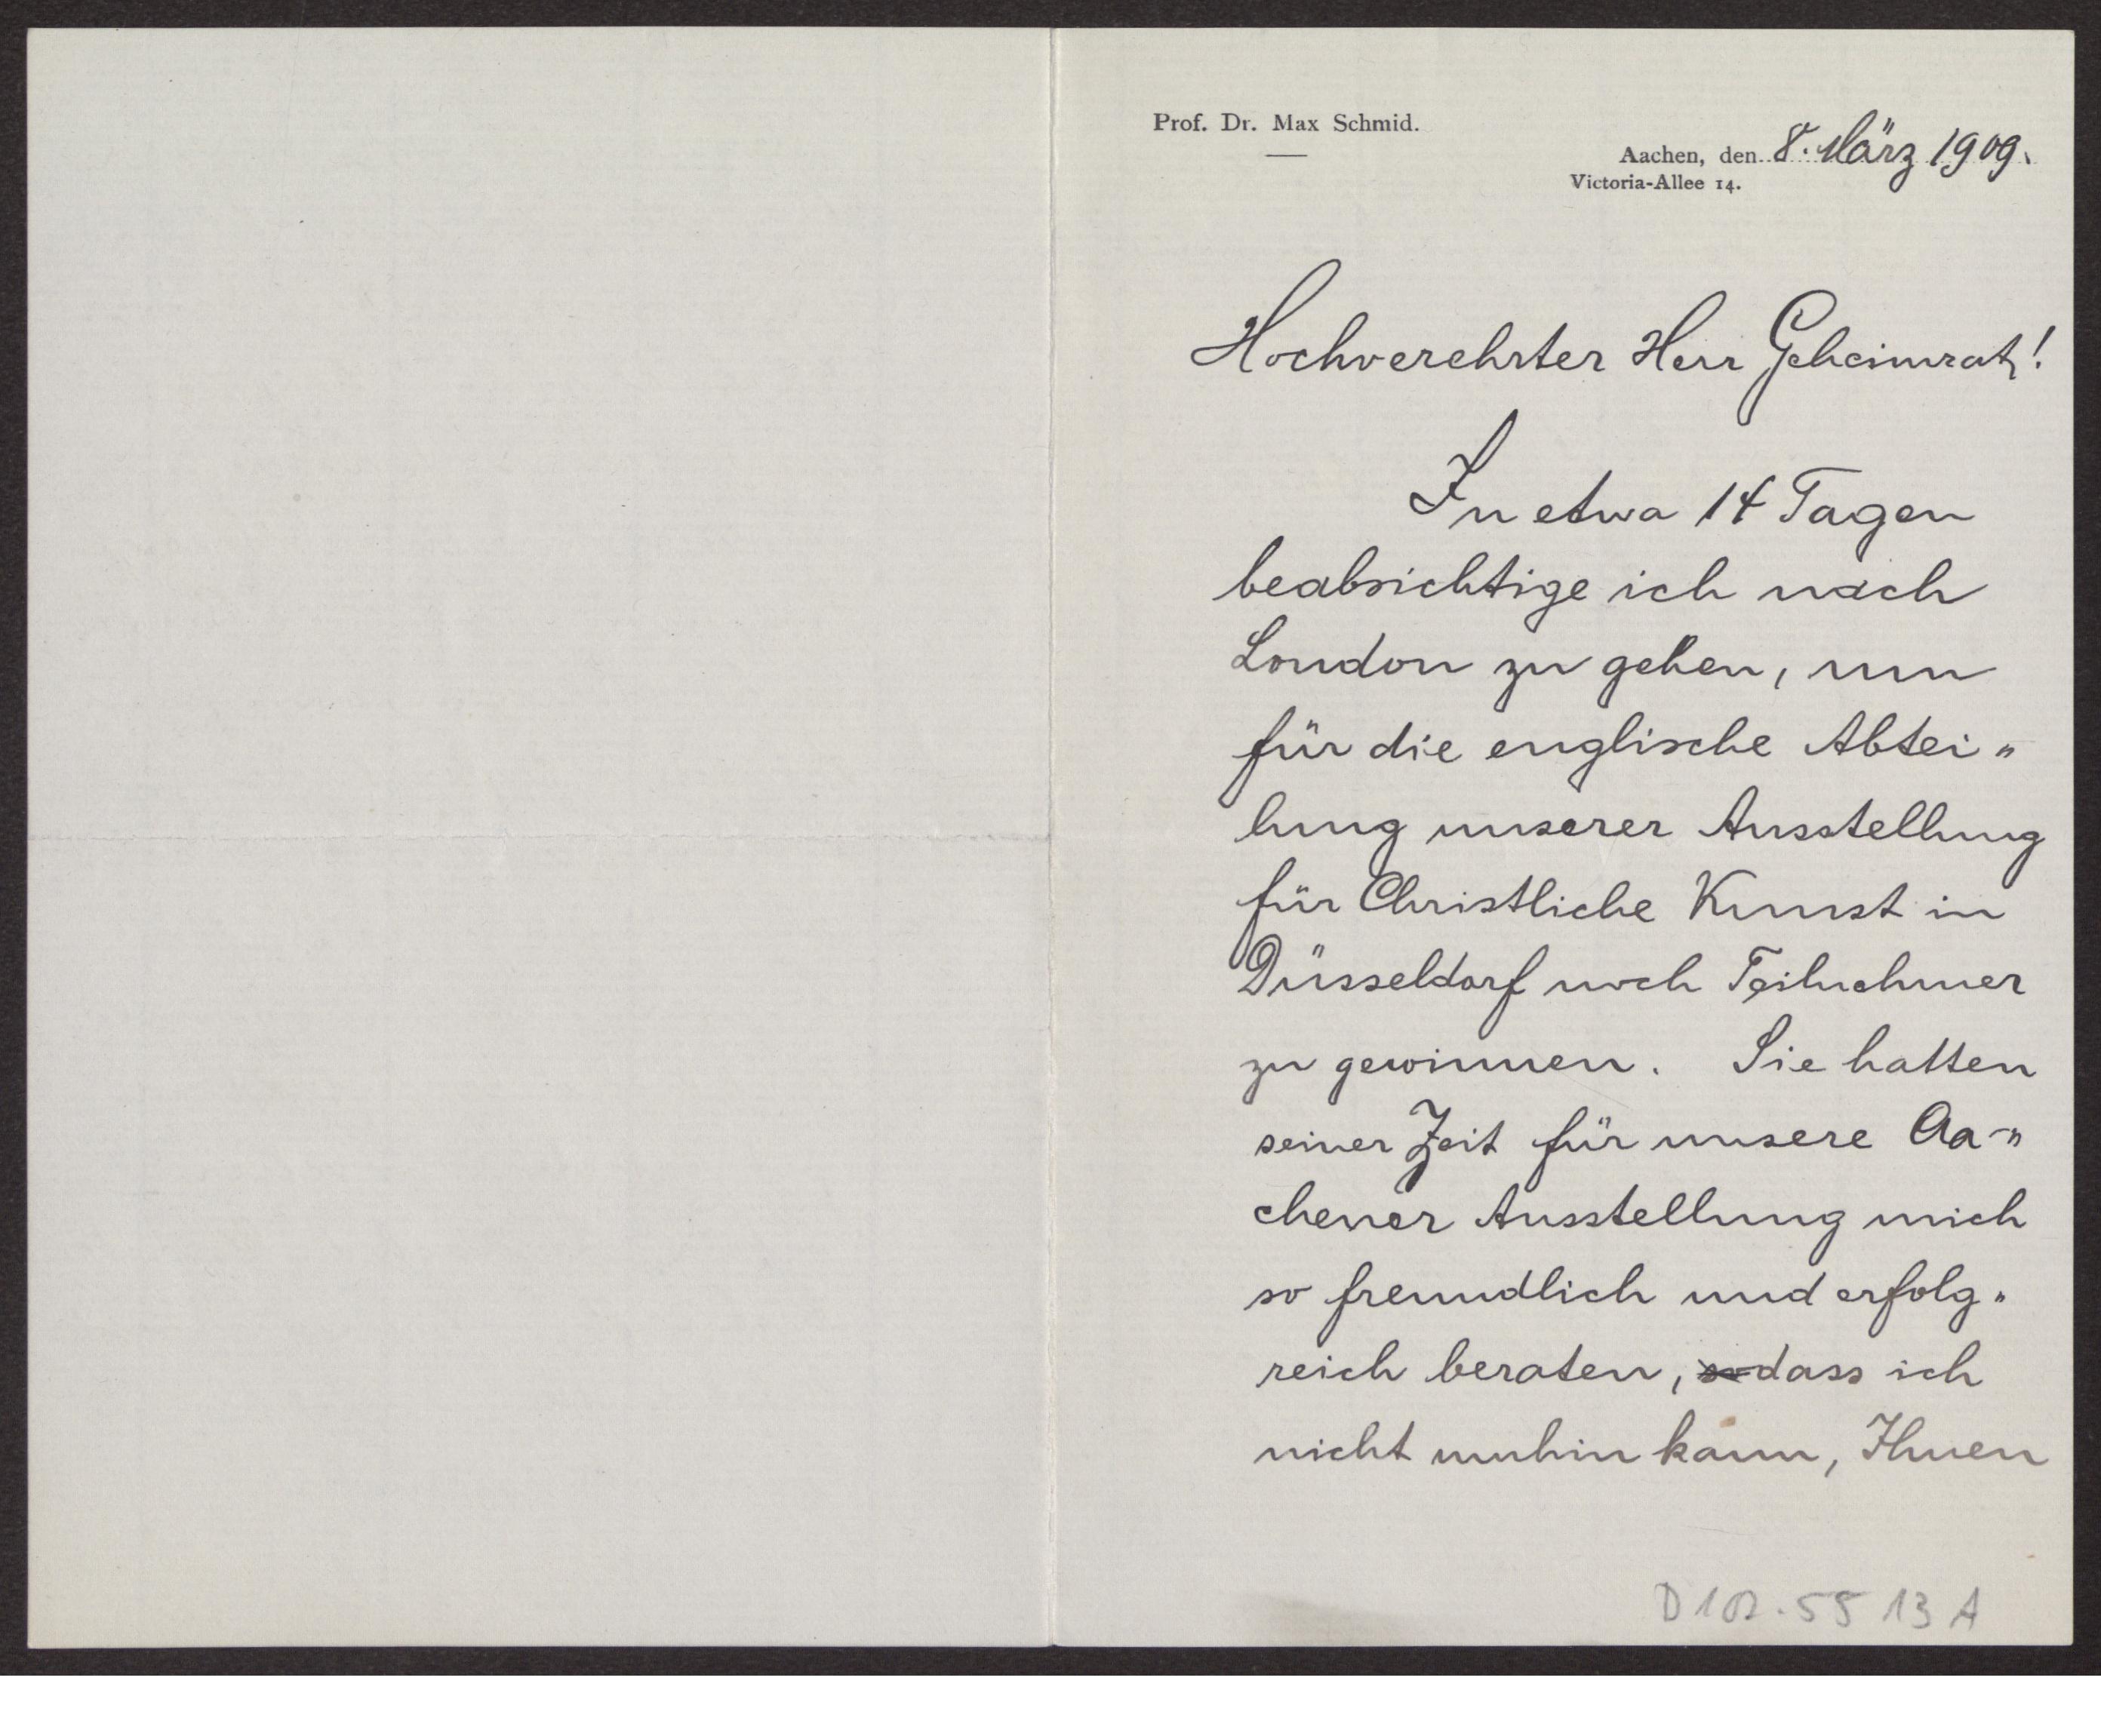 Prof. Dr. Max Schmid.
Aachen, den 8. März 1909.
Victoria-Allee 14.
Hochverehrter Herr Geheimrat!
In etwa 14 Tagen
beabsichtige ich nach
London zu gehen, um
für die englische Abtei„
lung unserer Ausstellung
für Christliche Kunst in
Düsseldorf noch Teilnehmer
zu gewinnen. Sie hatten
seiner Zeit für unsere Aa-„
chener Ausstellung mich
so freundlich und erfolg„
reich beraten, so dass ich
nicht umhin kann, Ihnen
D 102.55 13 A